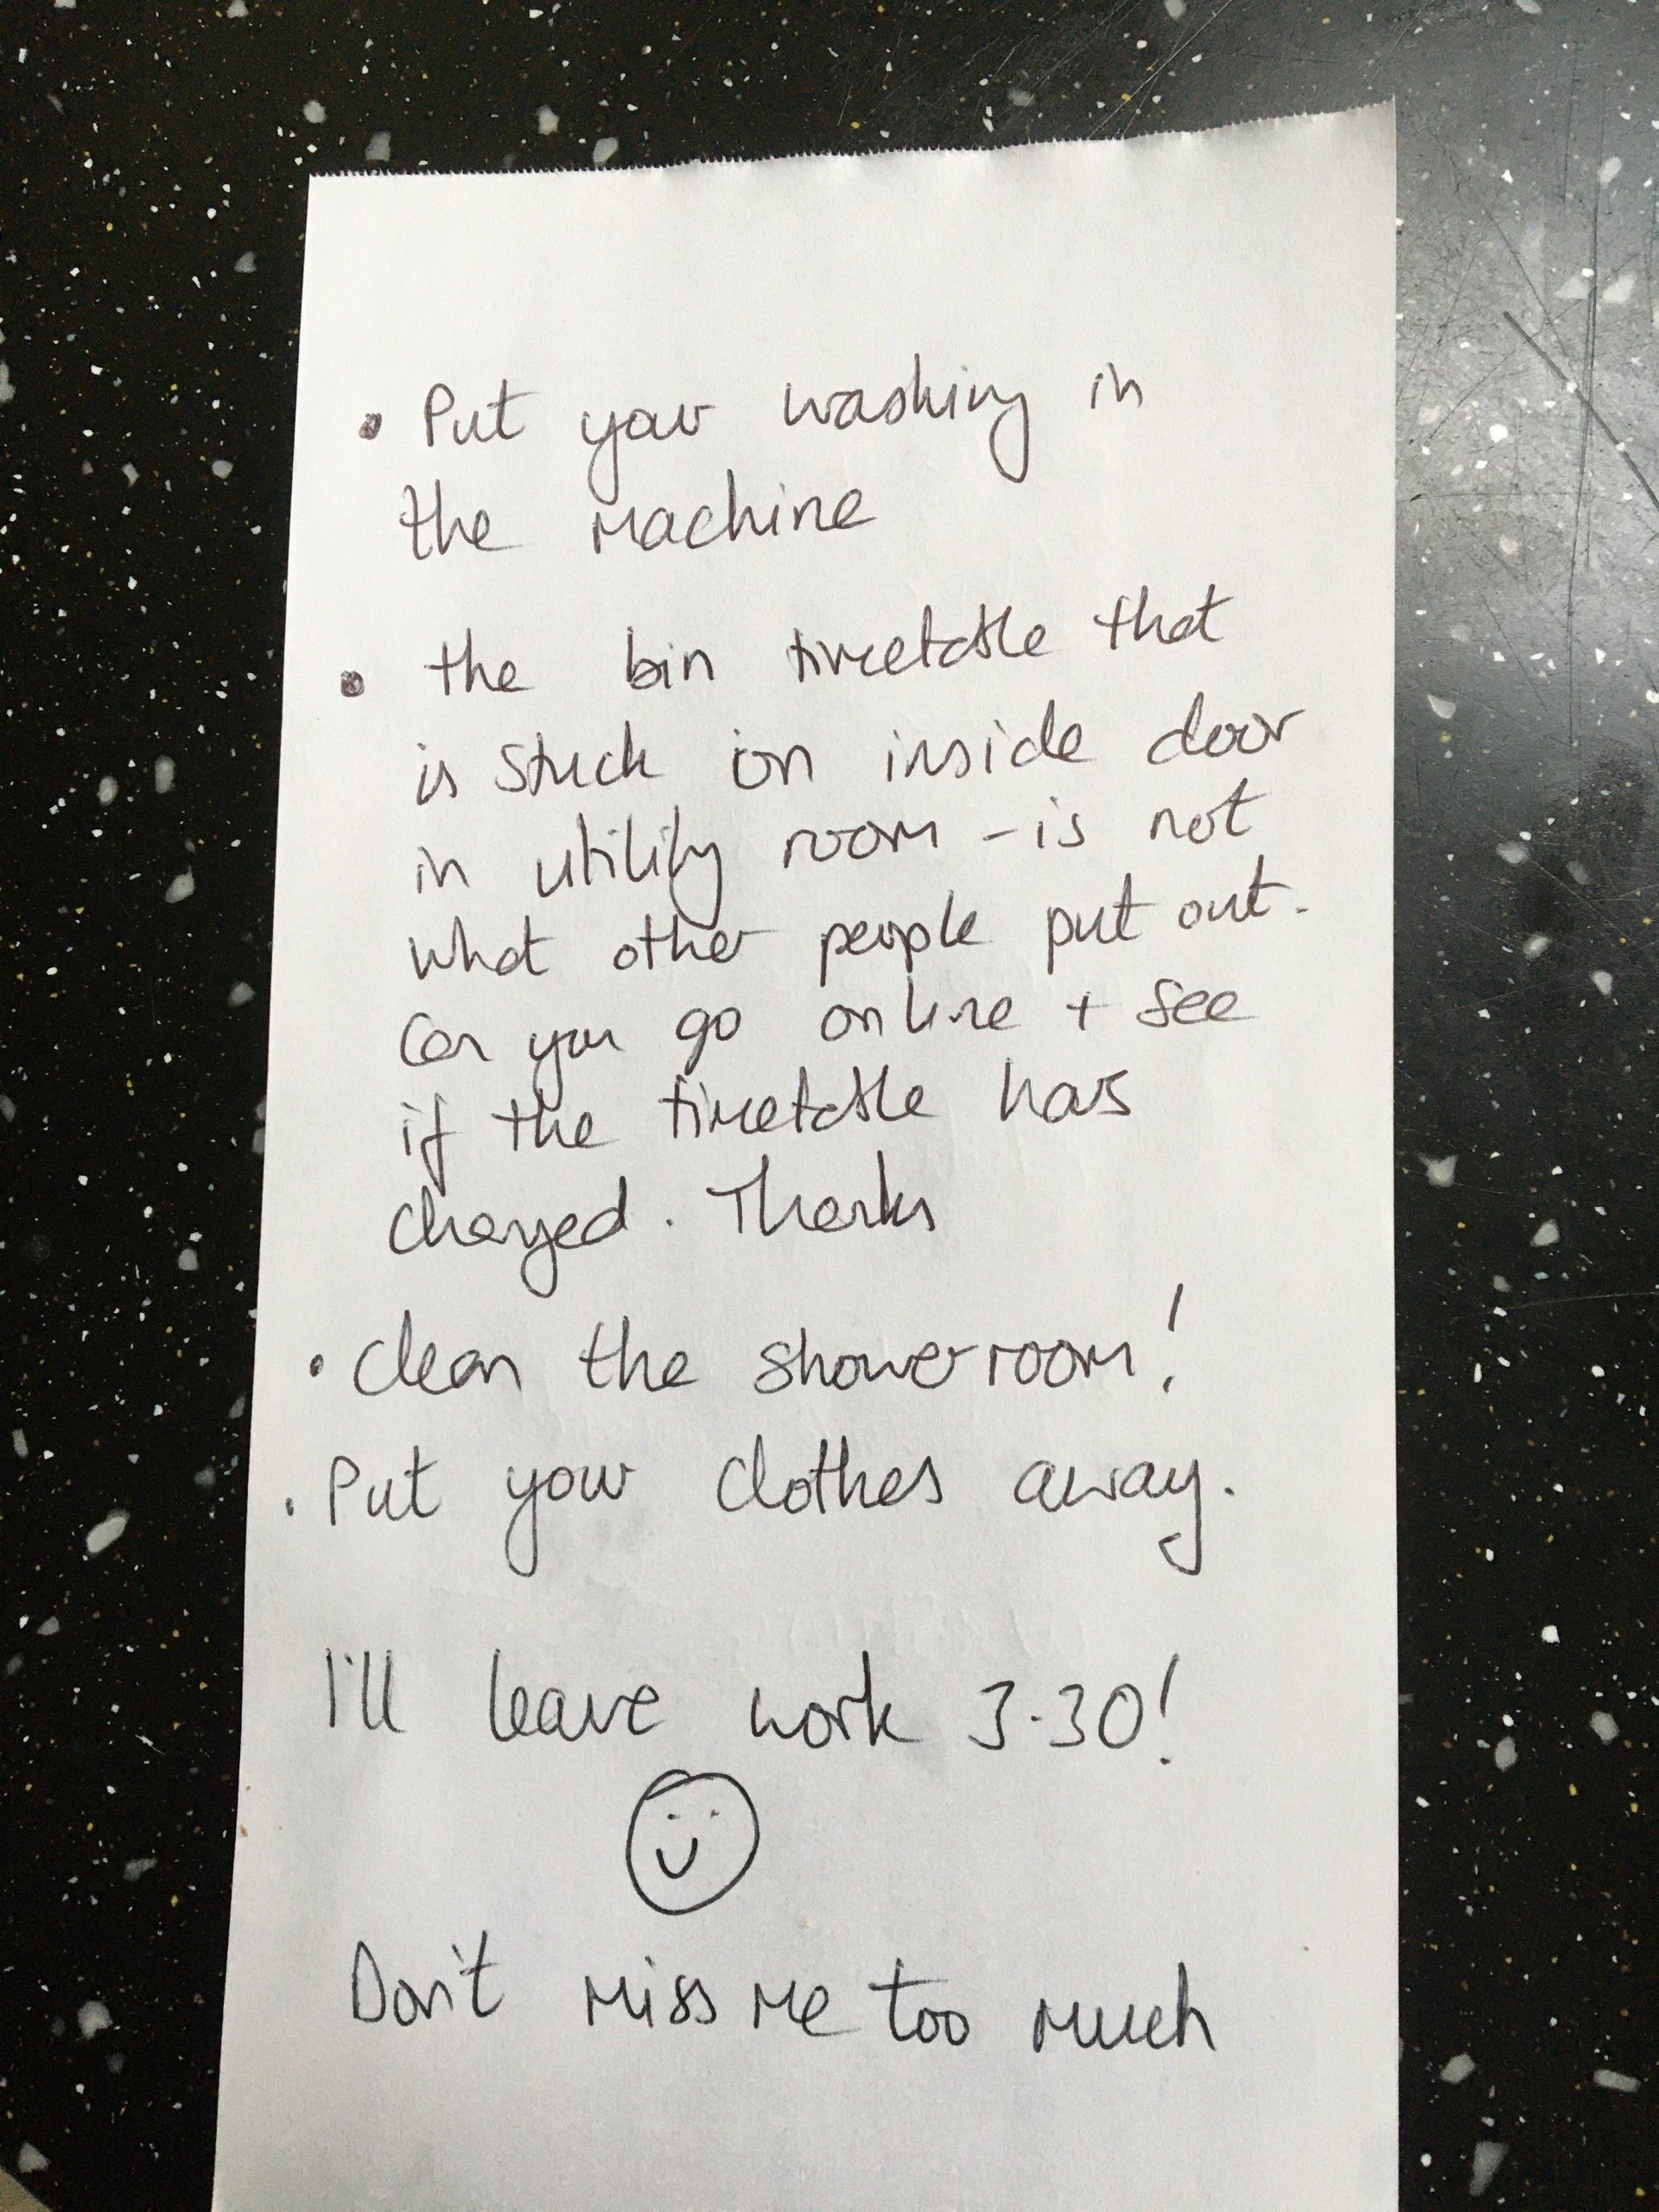 • Put your washing in
the machine
• the bin timetable that
is stuck on inside door
in utility room - is not
what other people put out.
Can you go online + see
if the timetable has
changed. Thanks
• Clean the shower room!
• Put your clothes away.
I'll leave work 3.30!
Don't miss me too much